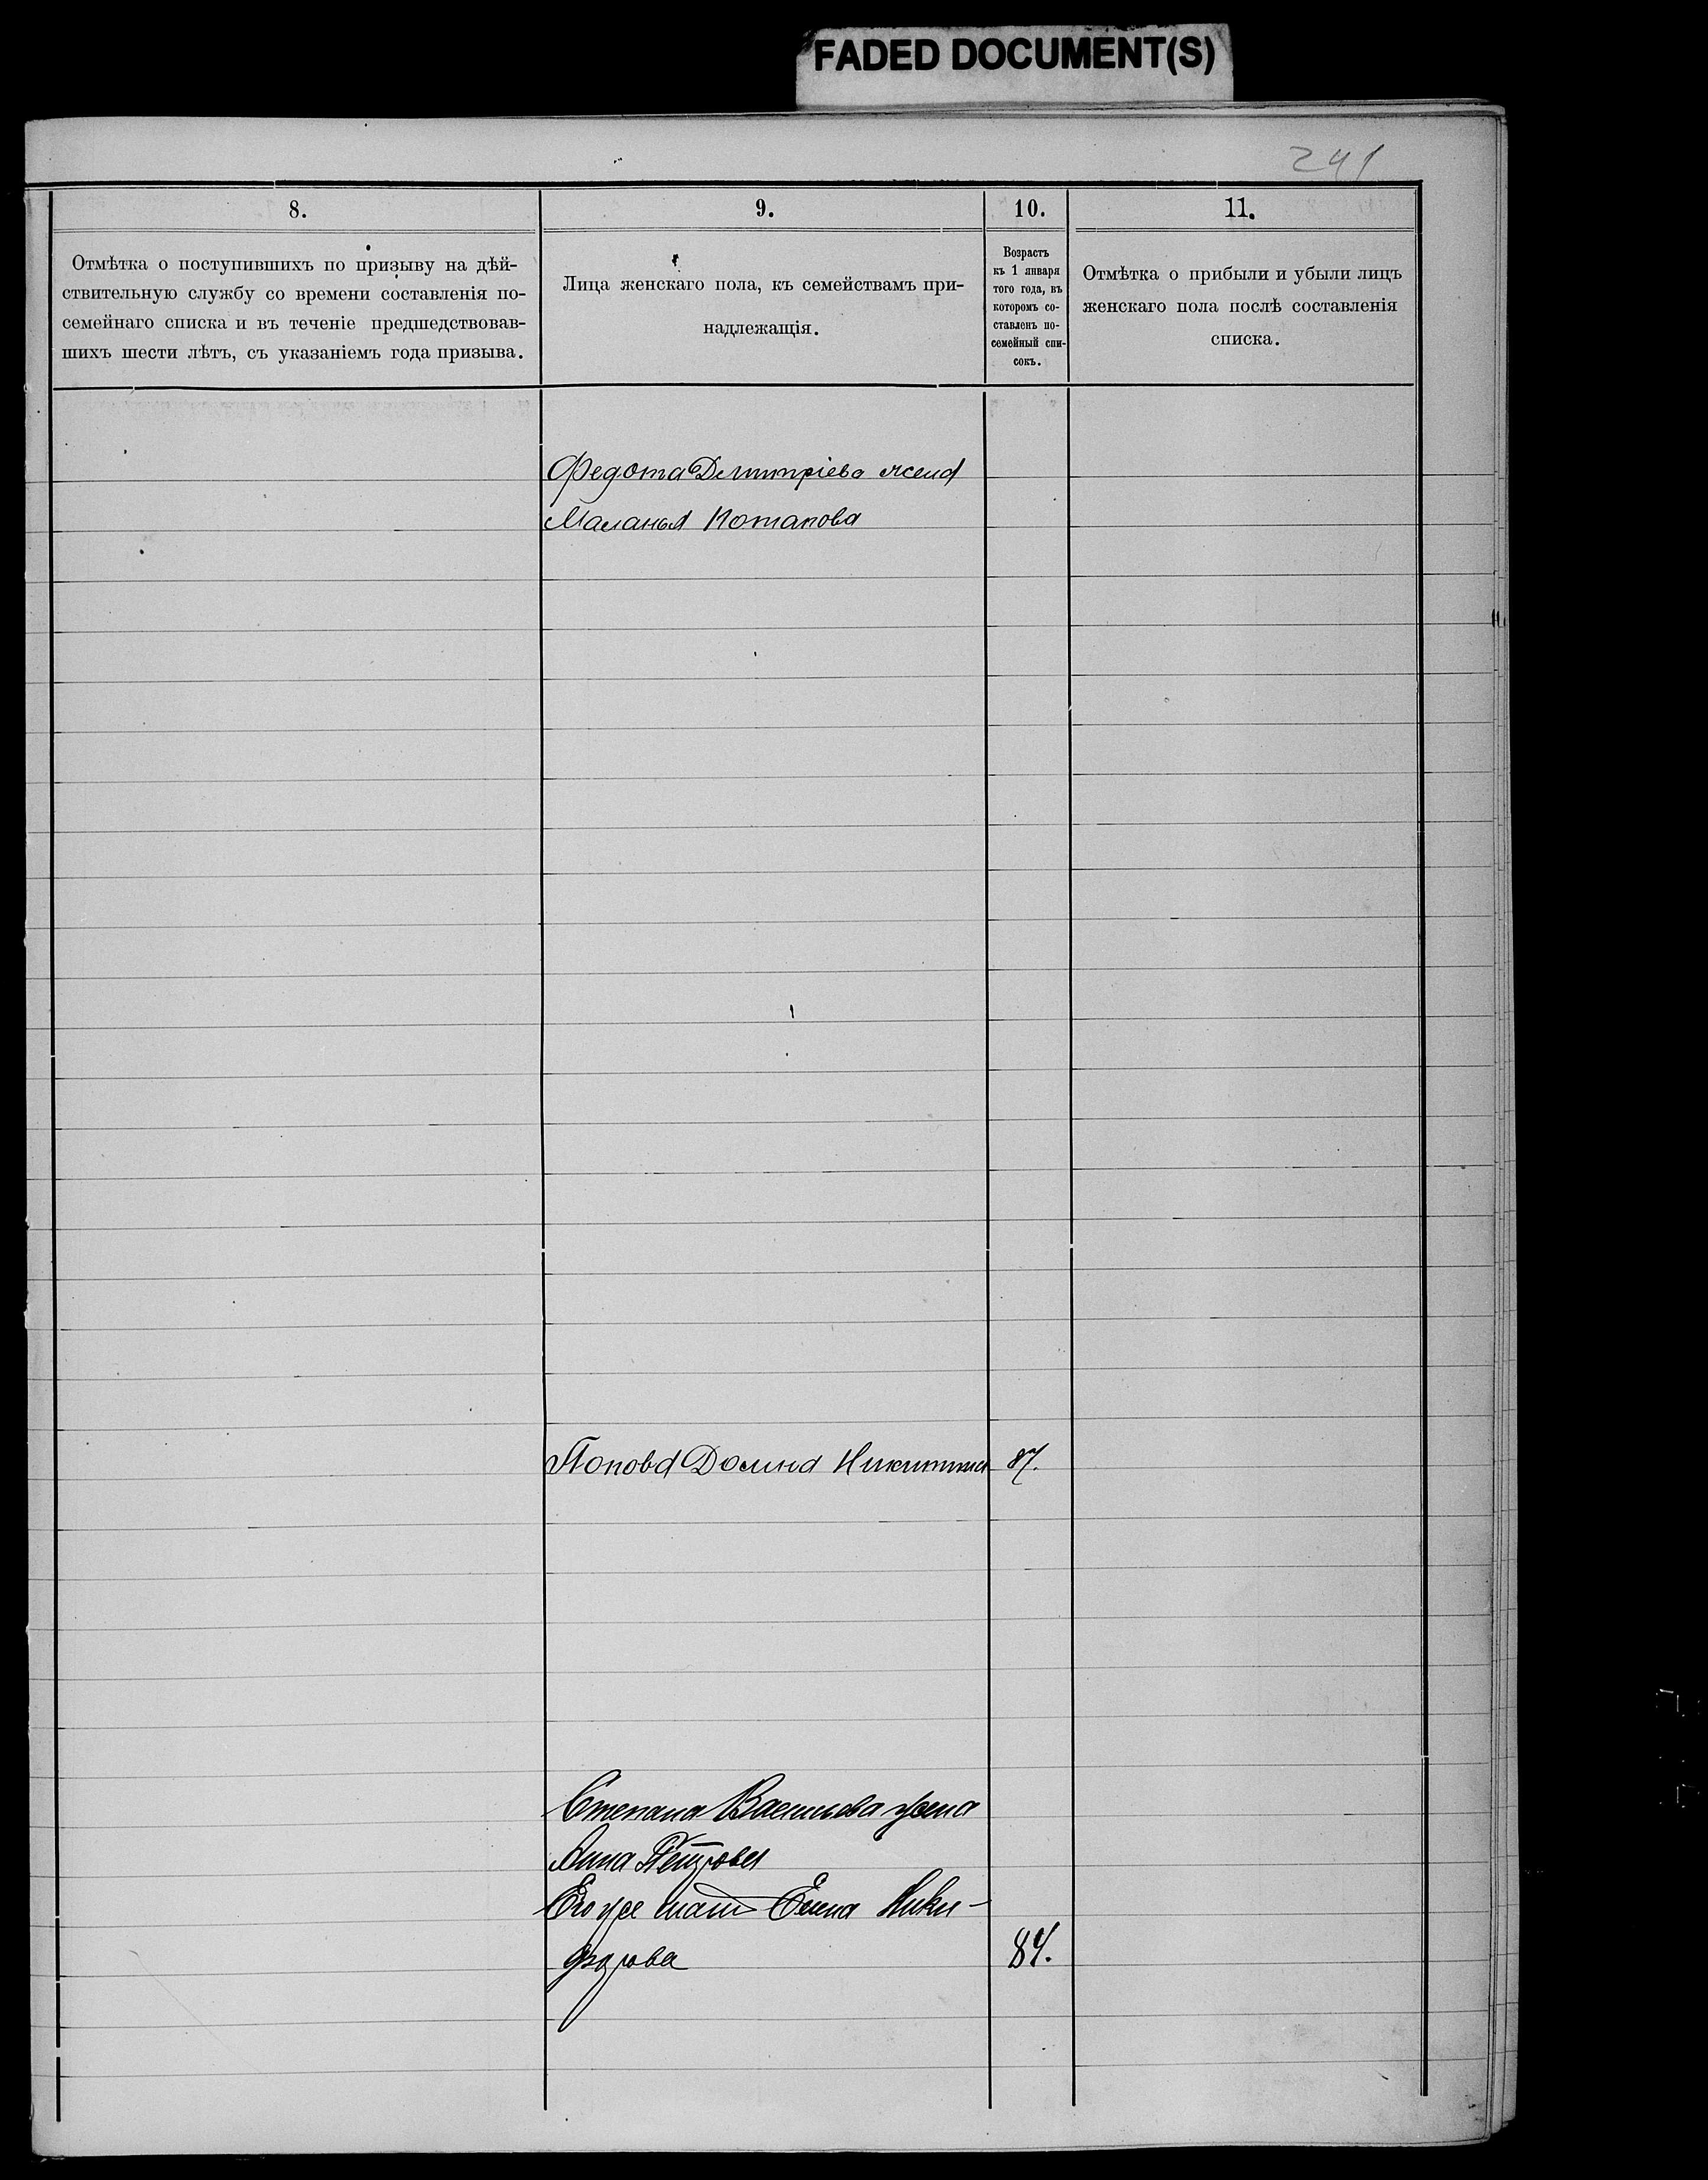 FADED DOCUMENT(S)
241
8.
9.
10.
11.
Отмѣтка о поступившихъ по призыву на дѣй-
ствительную службу со времени составленія по-
семейнаго списка и въ теченіе предшедствовав-
шихъ шести лѣтъ, съ указаніемъ года призыва.
Лица женскаго пола, къ семействамъ при-
надлежащія.
Возрастъ
къ 1 января
того года, въ
которомъ со-
ставленъ по-
семейный спи-
сокъ.
Отмѣтка о прибыли и убыли лицъ
женскаго пола послѣ составленія
списка.
Федота Дмитріева жена
Маланья Потапова
Попова Домна Никитина 87.
Степана Васильева жена
Анна Петрова
Его же мать Елена Ники-
форова 84.